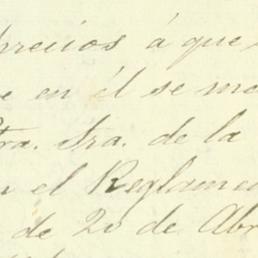 precios á que
e en él se me
tra. Sra. de la
n el Reglame
de 20 de Abr